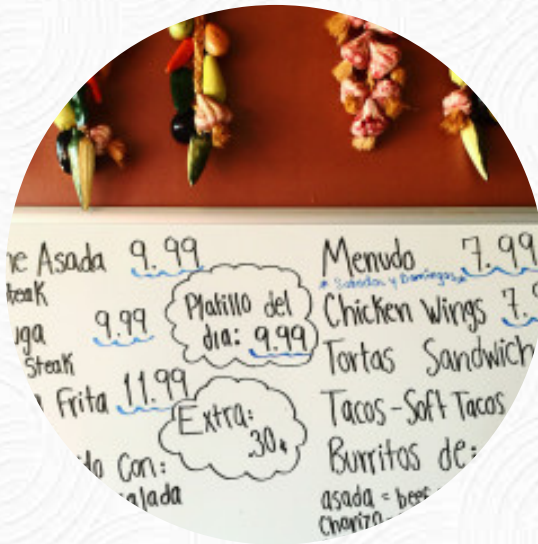 Asada 9.99
steak
9.99
Steak
Frita 11.99
Con:
Platillo del
dia: 9.99
Extra:
.30¢
Menudo 7.99
* Sabados y Domingos *
Chicken Wings
Tortas Sandwich
Tacos-Soft Tacos
Burritos de:
asada = beef
Chorizo